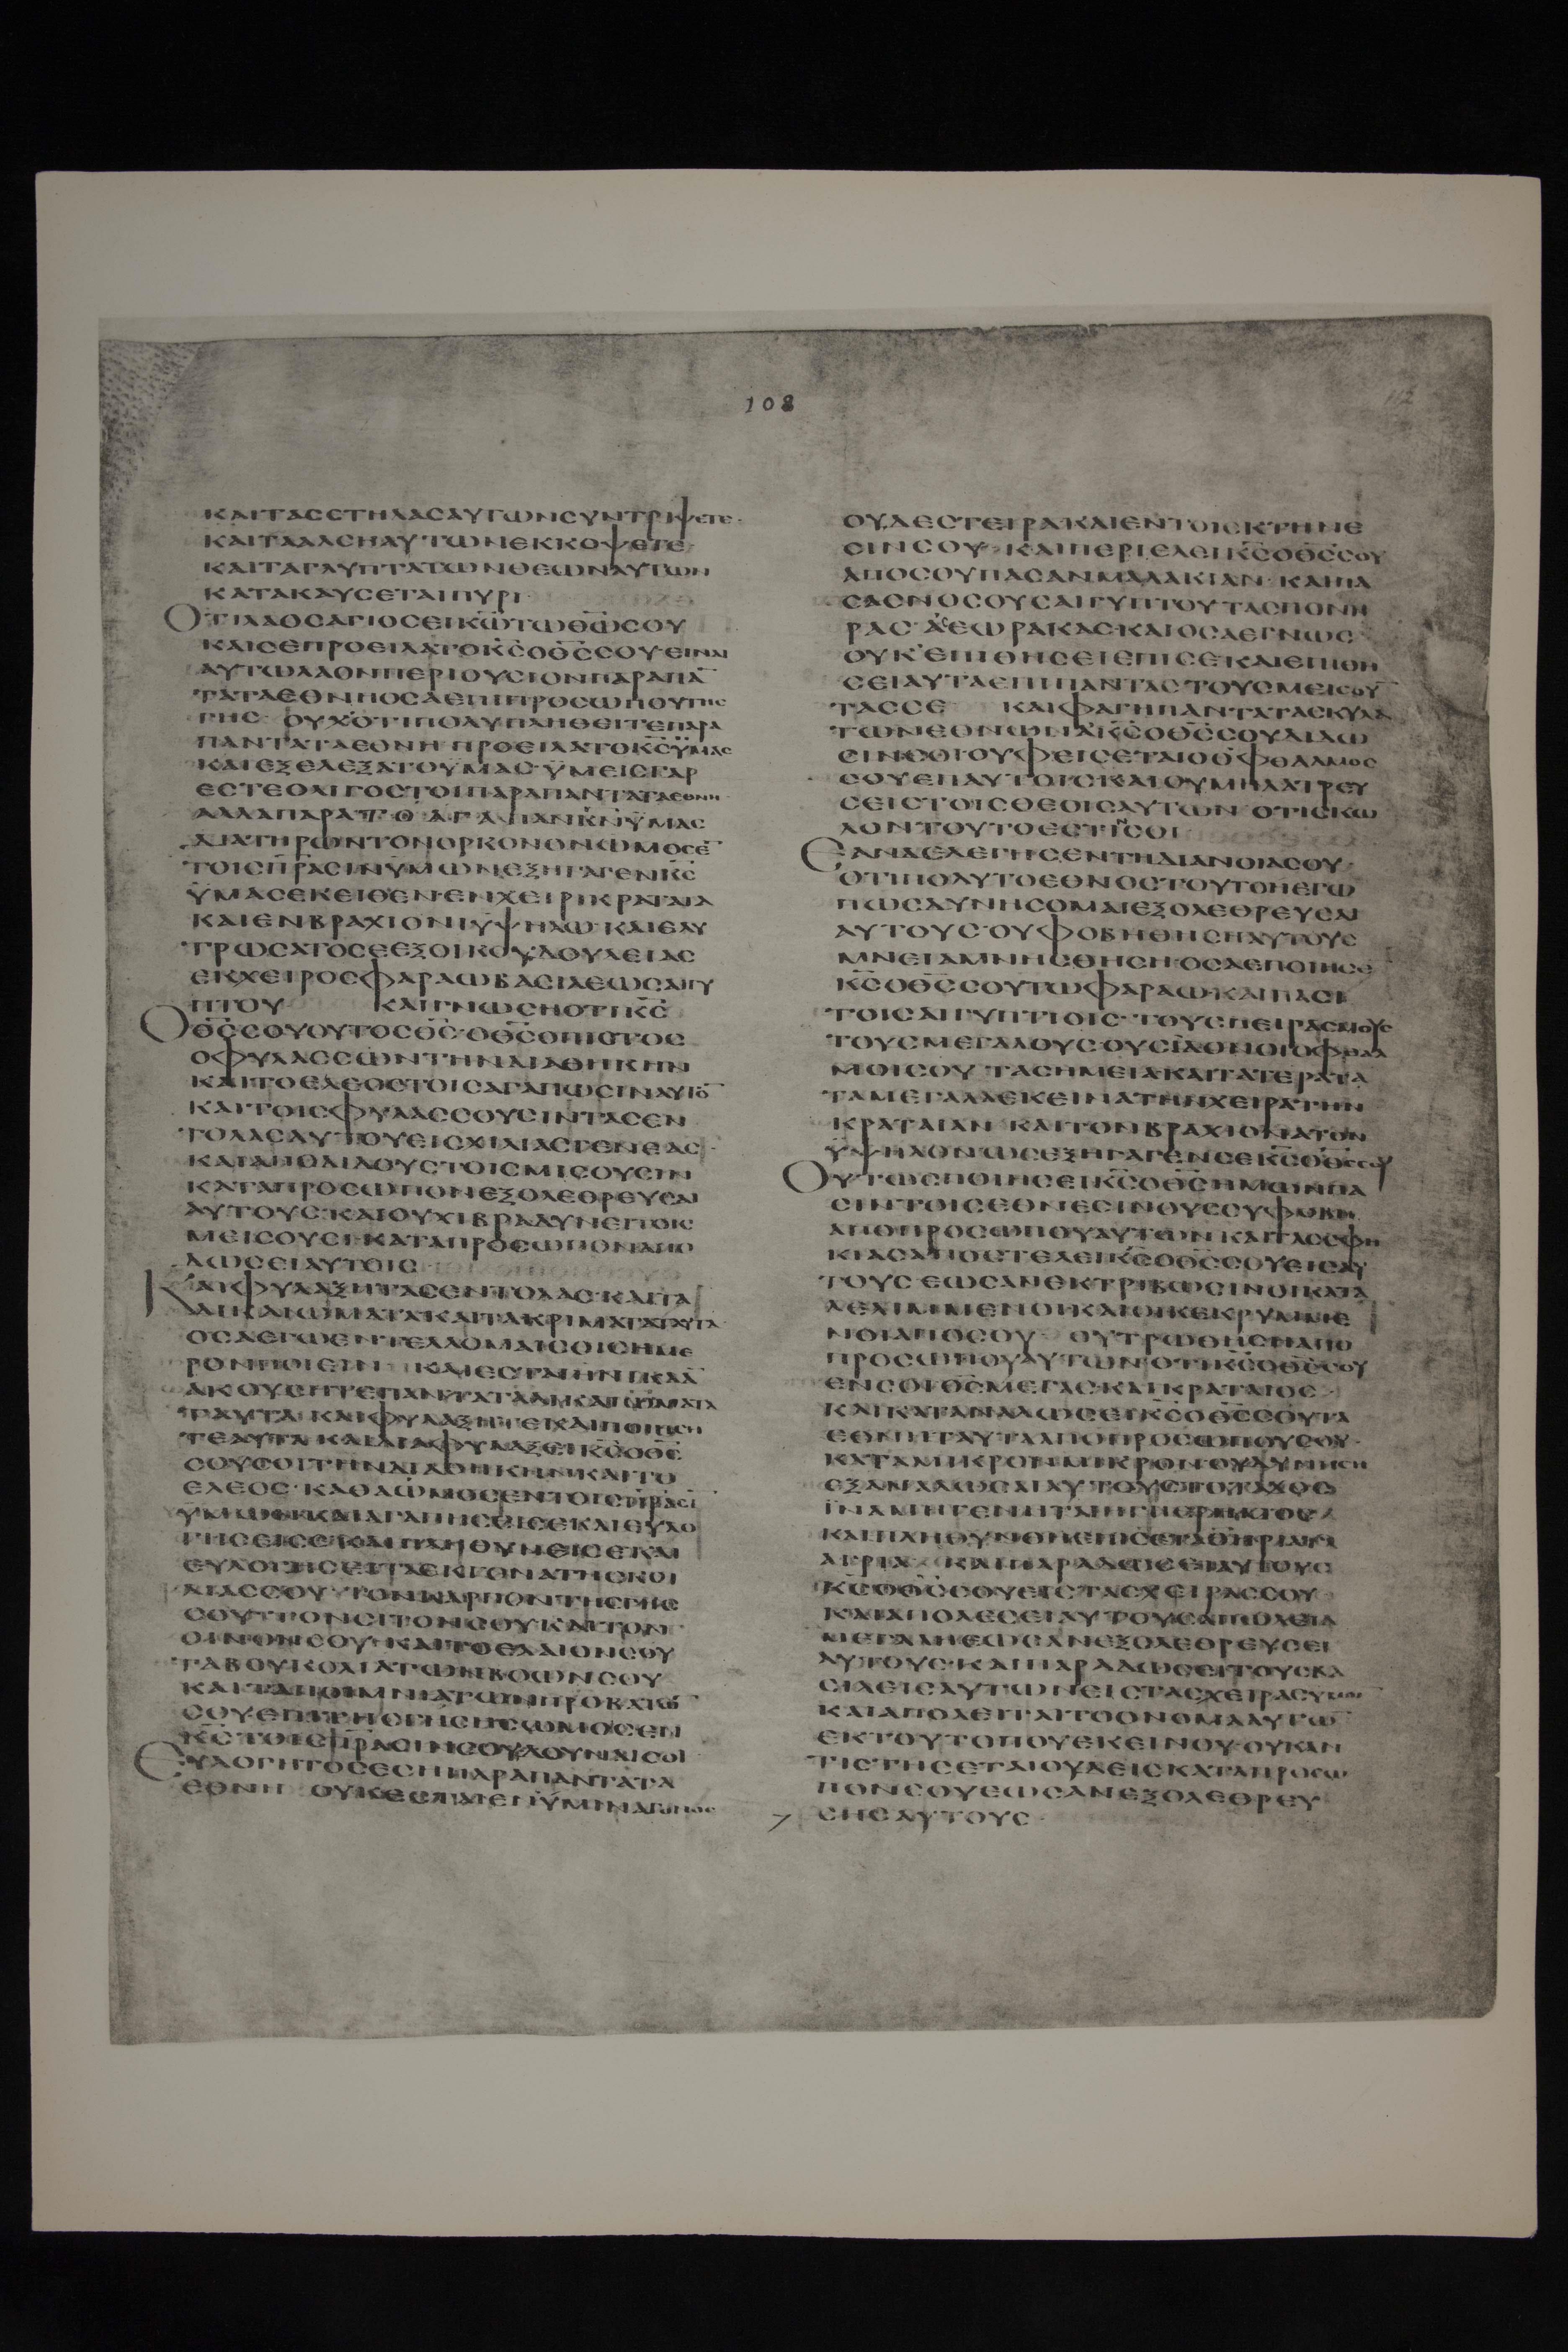 108
112
ΚΑΙΤΑССΤΗΛΑСΑΥΤωΝСΥΝΤΡΙΨΕΤΕ·
ΚΑΙΤΑΑΛСΗΑΥΤωΝΕΚΚΟΨΕΤΕ
ΚΑΙΤΑΓΛΥΠΤΑΤωΝΘΕωΝΑΥΤωΝ
ΚΑΤΑΚΑΥСΕΤΑΙΠΥΡΙ·
ΟΤΙΛΑΟСΑΓΙΟСΕΙΚ̅ω̅ΤωΘ̅ω̅СΟΥ
ΚΑΙСΕΠΡΟΕΙΛΑΤΟΚ̅С̅ΟΘ̅С̅СΟΥΕΙΝΑΙ
ΑΥΤωΛΑΟΝΠΕΡΙΟΥСΙΟΝΠΑΡΑΠΑ̅
ΤΑΤΑΕΘΝΗΟСΑΕΠΙΠΡΟСωΠΟΥΤΗС
ΓΗС· ΟΥΧΟΤΙΠΟΛΥΠΛΗΘΕΙΤΕΠΑΡΑ
ΠΑΝΤΑΤΑΕΘΝΗ·ΠΡΟΕΙΛΑΤΟΚ̅С̅ΫΜΑС
ΚΑΙΕΞΕΛΕΞΑΤΟΫΜΑС·ΫΜΕΙСΓΑΡ
ΕСΤΕΟΛΙΓΟСΤΟΙΠΑΡΑΠΑΝΤΑΤΑΕΘΝΗ·
ΑΛΛΑΠΑΡΑΤΟΑΓΑΠΑΝΚ̅Ν̅ΫΜΑС
ΔΙΑΤΗΡωΝΤΟΝΟΡΚΟΝΟΝωΜΟСΕ̅
ΤΟΙСΠ̅Ρ̅ΑСΙΝΫΜωΝΕΞΗΓΑΓΕΝΚ̅С̅
ΫΜΑСΕΚΕΙΘΕΝΕΝΧΕΙΡΙΚΡΑΤΑΙΑ
ΚΑΙΕΝΒΡΑΧΙΟΝΙΫΨΗΛω·ΚΑΙΕΛΥ
ΤΡωСΑΤΟСΕΕΞΟΙΚΟΥΔΟΥΛΕΙΑС
ΕΚΧΕΙΡΟСΦΑΡΑωΒΑСΙΛΕωСΑΙΓΥ
ΠΤΟΥ· ΚΑΙΓΝωСΗΟΤΙΚ̅С̅
ΟΘ̅С̅СΟΥΟΥΤΟСΘ̅С̅·ΟΘ̅С̅ΟΠΙСΤΟС
ΟΦΥΛΑССωΝΤΗΝΔΙΑΘΗΚΗΝ
ΚΑΙΤΟΕΛΕΟСΤΟΙСΑΓΑΠωСΙΝΑΥΤΟ̅
ΚΑΙΤΟΙСΦΥΛΑССΟΥСΙΝΤΑСΕΝ
ΤΟΛΑСΑΥΤΟΥΕΙСΧΙΛΙΑСΓΕΝΕΑС·
ΚΑΙΑΠΟΔΙΔΟΥСΤΟΙСΜΙСΟΥСΙΝ
ΚΑΤΑΠΡΟСωΠΟΝΕΞΟΛΕΘΡΕΥСΑΙ
ΑΥΤΟΥС·ΚΑΙΟΥΧΙΒΡΑΔΥΝΕΙΤΟΙС
ΜΕΙСΟΥСΙΝΚΑΤΑΠΡΟСωΠΟΝΑΠΟ
ΔωСΕΙΑΥΤΟΙС·
ΚΑΙΦΥΛΑΞΗΤΑСΕΝΤΟΛΑС·ΚΑΙΤΑ
ΔΙΚΑΙωΜΑΤΑΚΑΙΤΑΚΡΙΜΑΤΑΤΑΥΤΑ
ΟСΑΕΓωΕΝΤΕΛΛΟΜΑΙСΟΙСΗΜΕ
ΡΟΝΠΟΙΕΙΝ· ΚΑΙΕСΤΑΙΗΝΙΚΑΑ̅
ΑΚΟΥСΗΤΕΠΑΝΤΑΤΑΔΙΚΑΙωΜΑΤΑ
ΤΑΥΤΑ·ΚΑΙΦΥΛΑΞΗΤΕΚΑΙΠΟΙΗСΗ
ΤΕΑΥΤΑ·ΚΑΙΔΙΑΦΥΛΑΞΕΙΚ̅С̅ΟΘ̅С̅
СΟΥСΟΙΤΗΝΔΙΑΘΗΚΗΝΚΑΙΤΟ
ΕΛΕΟС·ΚΑΘΑωΜΟСΕΝΤΟΙСΠ̅Ρ̅ΑСΙ
ΫΜωΝ·ΚΑΙΑΓΑΠΗСΕΙСΕΚΑΙΕΥΛΟ
ΓΗСΕΙСΕΚΑΙΠΛΗΘΥΝΕΙСΕΚΑΙ
ΕΥΛΟΓΗСΕΙΤΑΕΚΓΟΝΑΤΗСΚΟΙ
ΛΙΑССΟΥ·ΤΟΝΚΑΡΠΟΝΤΗСΓΗС
СΟΥΤΟΝСΙΤΟΝСΟΥ·ΚΑΙΤΟΝ
ΟΙΝΟΝСΟΥ·ΚΑΙΤΟΕΛΑΙΟΝСΟΥ
ΤΑΒΟΥΚΟΛΙΑΤωΝΒΟωΝСΟΥ
ΚΑΙΤΑΠΟΙΜΝΙΑΤωΝΠΡΟΒΑΤω̅
СΟΥΕΠΙΤΗСΓΗСΗСωΜΟСΕΝ
Κ̅С̅ΤΟΙСΠ̅Ρ̅ΑСΙΝСΟΥΔΟΥΝΑΙСΟΙ
ΕΥΛΟΓΗΤΟСΕСΗΠΑΡΑΠΑΝΤΑΤΑ
ΕΘΝΗ· ΟΥΚΕСΤΑΙΕΝΫΜΙΝΑΓΟΝΟС
ΟΥΔΕСΤΕΙΡΑΚΑΙΕΝΤΟΙСΚΤΗΝΕ
СΙΝСΟΥ·ΚΑΙΠΕΡΙΕΛΕΙΚ̅С̅ΟΘ̅С̅СΟΥ
ΑΠΟСΟΥΠΑСΑΝΜΑΛΑΚΙΑΝ·ΚΑΙΠΑ
СΑСΝΟСΟΥСΑΙΓΥΠΤΟΥΤΑСΠΟΝΗ
ΡΑС·ΑСΕωΡΑΚΑС·ΚΑΙΟСΑΕΓΝωС
ΟΥΚΕΠΙΘΗСΕΙΕΠΙСΕΚΑΙΕΠΙΘΗ
СΕΙΑΥΤΑΕΠΙΠΑΝΤΑСΤΟΥСΜΕΙСΟΥ̅
ΤΑССΕ ΚΑΙΦΑΓΗΠΑΝΤΑΤΑСΚΥΛΑ
ΤωΝΕΘΝωΝΑΚ̅С̅ΟΘ̅С̅СΟΥΔΙΔω
СΙΝСΟΙΟΥΦΕΙСΕΤΑΙΟΟΦΘΑΛΜΟС
СΟΥΕΠΑΥΤΟΙСΚΑΙΟΥΜΗΛΑΤΡΕΥ
СΕΙСΤΟΙСΘΕΟΙСΑΥΤωΝ·ΟΤΙСΚω
ΛΟΝΤΟΥΤΟΕСΤΙΝСΟΙ
ΕΑΝΔΕΛΕΓΗСΕΝΤΗΔΙΑΝΟΙΑСΟΥ·
ΟΤΙΠΟΛΥΤΟΕΘΝΟСΤΟΥΤΟΗΕΓω
ΠωСΔΥΝΗСΟΜΑΙΕΞΟΛΕΘΡΕΥСΑΙ
ΑΥΤΟΥС·ΟΥΦΟΒΗΘΗСΗΑΥΤΟΥС
ΜΝΕΙΑΜΝΗСΘΗСΗ·ΟСΑΕΠΟΙΗСΕ̅
Κ̅С̅ΟΘ̅С̅СΟΥΤωΦΑΡΑω·ΚΑΙΠΑСΙ
ΤΟΙСΑΙΓΥΠΤΙΟΙС·ΤΟΥСΠΕΙΡΑСΜΟΥС
ΤΟΥСΜΕΓΑΛΟΥСΟΥСΙΔΟΝΟΙΟΦΘΑΛ
ΜΟΙСΟΥ·ΤΑСΗΜΕΙΑ·ΚΑΙΤΑΤΕΡΑΤΑ
ΤΑΜΕΓΑΛΑΕΚΕΙΝΑΤΗΝΧΕΙΡΑΤΗΝ
ΚΡΑΤΑΙΑΝ·ΚΑΙΤΟΝΒΡΑΧΙΟΝΑΤΟΝ
ΫΨΗΛΟΝωСΕΞΗΓΑΓΕΝСΕΚ̅С̅ΟΘ̅С̅СΟΥ
ΟΥΤωСΠΟΙΗСΕΙΚ̅С̅ΟΘ̅С̅ΗΜωΝΠΑ
СΙΝΤΟΙСΕΘΝΕСΙΝΟΥССΥΦΟΒΗ
ΑΠΟΠΡΟСωΠΟΥΑΥΤωΝ·ΚΑΙΤΑССΦΗ
ΚΙΑСΑΠΟСΤΕΛΕΙΚ̅С̅ΟΘ̅С̅СΟΥΕΙСΑΥ
ΤΟΥС·ΕωСΑΝΕΚΤΡΙΒωСΙΝΟΙΚΑΤΑ
ΛΕΛΙΜΜΕΝΟΙΚΑΙΟΙΚΕΚΡΥΜΜΕ
ΝΟΙΑΠΟСΟΥ· ΟΥΤΡωΘΗСΗΑΠΟ
ΠΡΟСωΠΟΥΑΥΤωΝ·ΟΤΙΚ̅С̅ΟΘ̅С̅СΟΥ
ΕΝСΟΙΘ̅С̅ΜΕΓΑС·ΚΑΙΚΡΑΤΑΙΟС
ΚΑΙΚΑΤΑΝΑΛωСΕΙΚ̅С̅ΟΘ̅С̅СΟΥΤΑ
ΕΘΝΗΤΑΥΤΑΑΠΟΠΡΟСωΠΟΥСΟΥ·
ΚΑΤΑΜΙΚΡΟΝΜΙΚΡΟΝΟΥΔΥΝΗСΗ
ΕΞΑΝΑΛωСΑΙΑΥΤΟΥСΤΟΤΑΧΟС
ΪΝΑΜΗΓΕΝΗΤΑΙΗΓΗΕΡΗΜΟС
ΚΑΙΠΛΗΘΥΝΘΗΕΠΙСΕΤΑΘΗΡΙΑΤΑ
ΑΓΡΙΑ· ΚΑΙΠΑΡΑΔωСΕΙΑΥΤΟΥС
Κ̅С̅ΟΘ̅С̅СΟΥΕΙСΤΑСΧΕΙΡΑССΟΥ·
ΚΑΙΑΠΟΛΕСΕΙΑΥΤΟΥСΑΠωΛΕΙΑ
ΜΕΓΑΛΗΕωСΑΝΕΞΟΛΕΘΡΕΥСΕΙ
ΑΥΤΟΥС·ΚΑΙΠΑΡΑΔωСΕΙΤΟΥСΒΑ
СΙΛΕΙСΑΥΤωΝΕΙСΤΑСΧΕΙΡΑСΥΜω̅
ΚΑΙΑΠΟΛΕΙΤΑΙΤΟΟΝΟΜΑΑΥΤω̅
ΕΚΤΟΥΤΟΠΟΥΕΚΕΙΝΟΥ·ΟΥΚΑΝ
ΤΙСΤΗСΕΤΑΙΟΥΔΕΙСΚΑΤΑΠΡΟСω
ΠΟΝСΟΥΕωСΑΝΕΞΟΛΕΘΡΕΥ
СΗСΑΥΤΟΥС·